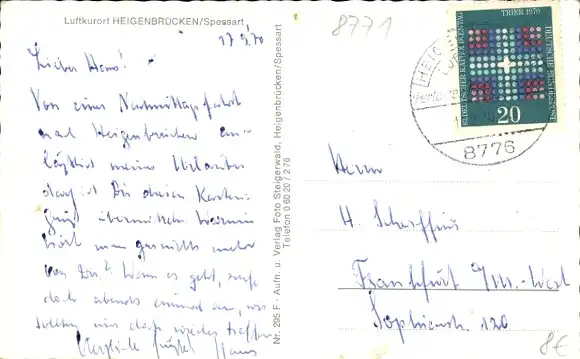 Luftkurort HEIGENBRÜCKEN/Spessart
8771
Lieber Hans!
Von einer Nachmittagsfahrt
nach Heigenbrücken
meines Urlaubes
darf ich Dir diesen Karten-
gruß übermitteln. Warum
hört man garnichts mehr
von Dir? Wenn es geht, rufe
doch abends einmal an, wir
sollten uns doch wieder treffen
Herzliche Grüße Hans
Nr. 295 F - Aufn. u. Verlag Foto Steigerwald, Heigenbrücken/Spessart
Telefon 0 60 20 / 2 76
83. DEUTSCHER KATHOLIKENTAG
TRIER 1970
DEUTSCHE BUNDESPOST
20
8776
Herrn
H.
Frankfurt a/M.-West
Sophienstr. 120
8€